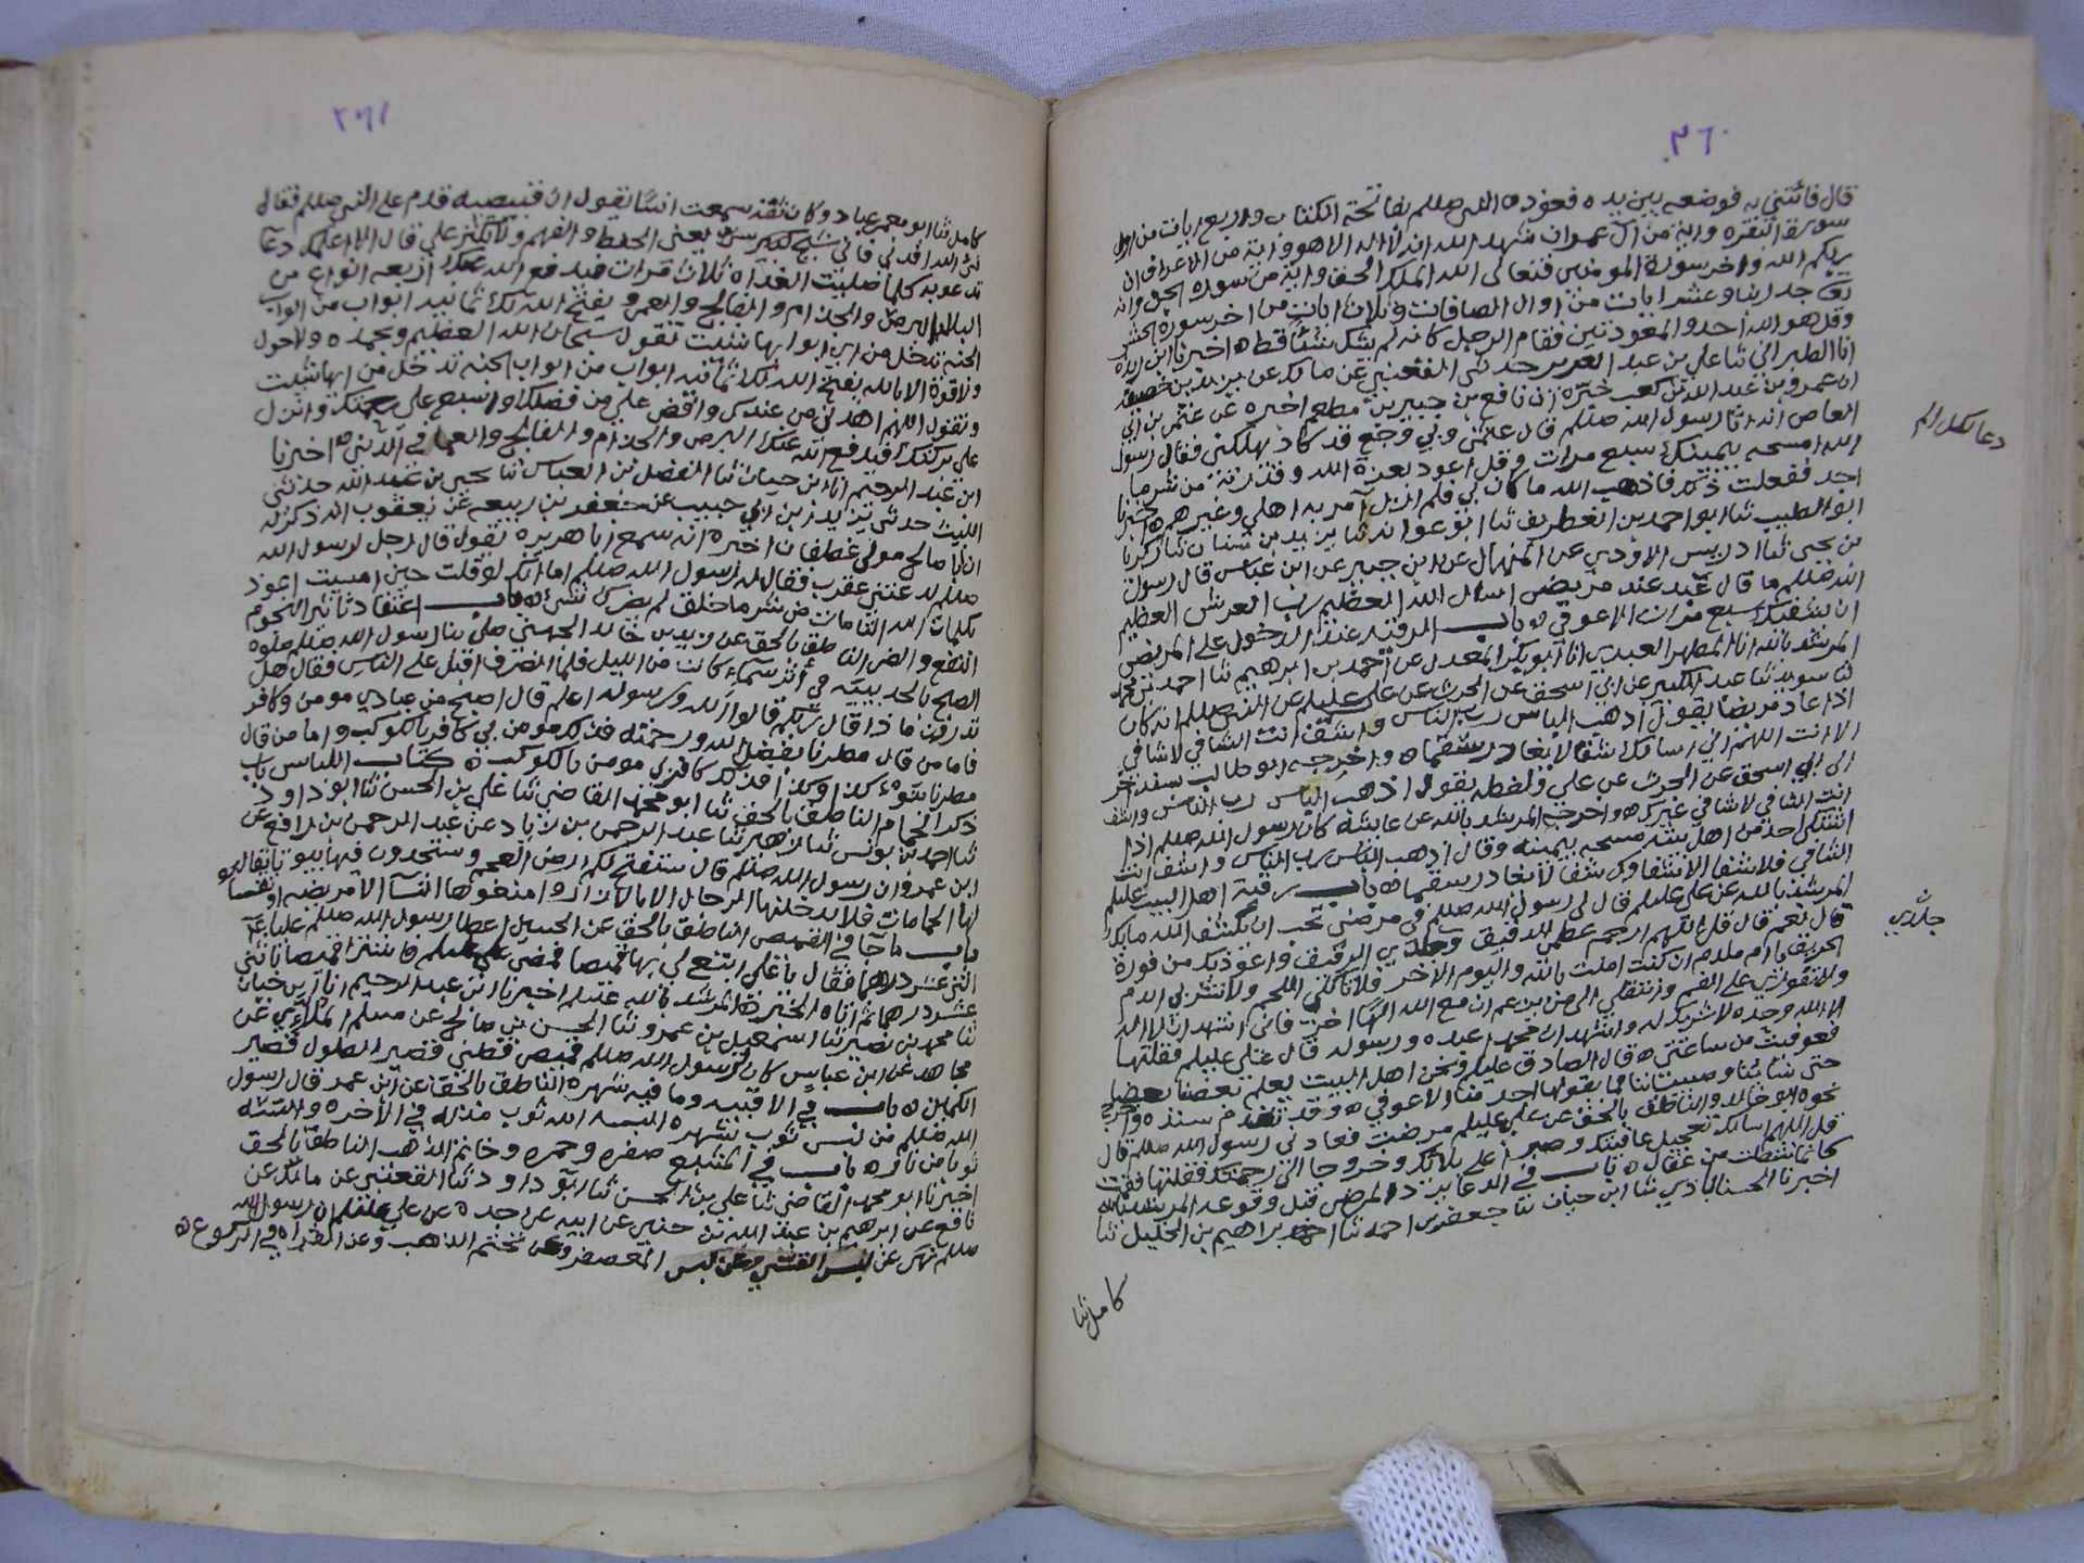 ٣٦٠
قال فائتني به فوضعه بين يديه فعوذه النبي صللم بفاتحة الكتاب واربع ايات من اول
سورة البقره واية من ال عمران شهد الله انه لا اله الا هو واية من الاعراف ان
ربكم الله واخر سورة المومنين فتعالى الله الملك الحق واية من سورة الجن وانه
تعالى جد ربنا وعشر ايات من اول الصافات وثلاث ايات من اخر سورة الحشر
وقل هو الله احد والمعوذتين فقام الرجل كانه لم يشك شيئا قط ه اخبرنا ابن ريذه
انا الطبراني ثنا علي بن عبد العزيز حدثنى القعنبي عن مالك عن يزيد بن خصيفه
ان عمرو بن عبد الله بن كعب خبره ان نافع بن جبير بن مطعم اخبره عن عثمن بن ابي
العاص انه اتا رسول الله صللم قال عثمن وبي وجع قد كاد يهلكني فقال رسول
الله امسحه بيمينك سبع مرات وقل اعوذ بعزة الله وقدرته من شر ما
اجد ففعلت ذلك فاذهب الله ما كان بي فلم ازل آمر به اهلي وغيرهم ه اخبرنا
ابو الطيب ثنا ابو احمد بن الغطريف ثنا ابو عوانه ثنا يزيد بن سنان ثنا زكريا
بن يحيى ثنا ادريس الاودي عن المنهال عن ابن جبير عن ابن عباس قال رسول
الله صللم ما قال عبد عند مريض اسال الله العظيم رب العرش العظيم
ان يشفيك سبع مرات الا عوفي ه باب الرقيه عند الدخول على المريض
المرشد بالله انا المطهر العبدي انا ابو بكر المعدل عن احمد بن ابرهيم ثنا احمد بن محمد
ثنا سويد ثنا عبد الكبير عن ابي اسحق عن الحرث عن علي عليلم عن النبي صللم انه كان
اذا عاد مريضا يقول اذهب الباس رب الناس واشف انت الشافي لا شافي
الا انت اللهم اني اسالك شفا لا يغادر سقما ه واخرجه ابو طالب بسند اخر
الى ابي اسحق عن الحرث عن علي ولفظه يقول اذهب الباس رب الناس واشف
انت الشافي لا شافي غيرك ه واخرجه المرشد بالله عن عايشة كان رسول الله صللم اذا
اشتكى احد من اهل بيته مسحه بيمينه وقال اذهب الباس رب الناس واشف انت
الشافي فلا شفا الا شفاوك شفا لا يغادر سقما ه باب رقية اهل البيت عليلم
المرشد بالله عن علي عليلم قال لي رسول الله صللم في مرضي تحب ان يكشف الله ما بك
قال نعم قال قل اللهم ارحم عظمي الدقيق وجلدي الرقيق واعوذ بك من فورة
الحريق يا ام ملدم ان كنت امنت بالله واليوم الاخر فلا تاكلي اللحم ولا تشربي الدم
ولا تفوري على الفم وانتقلي الى من يزعم ان مع الله الها اخر فاني اشهد ان لا اله
الا الله وحده لا شريك له واشهد ان محمدا عبده ورسوله قال علي عليلم فقلتها
فعوفيت من ساعتي ه قال الصادق عليلم ونحن اهل البيت يعلم بعضنا بعضا
حتى نسائنا وصبياننا فما يقولها احد منا الا عوفي ه وقد تقدم سنده واخرج
نحوه ابو خالد والناطق بالحق عن علي عليلم مرضت فعادني رسول الله صللم قال
قل اللهم اسالك تعجيل عافيتك وصبرا على بلائك وخروجا الى رحمتك فقلتها فقمت
كانما نشطت من عقال ه باب في الدعا يرد المرض قبل وقوعه المرشد بالله
اخبرنا الحسناباذي ثنا ابن حيان ثنا جعفر بن احمد ثنا ابراهيم بن الخليل ثنا
كامل ثنا
دعا لكل الم
جلدي
٣٦١
كامل ثنا ابو معمر عباد وكان ثقه سمعت انسا يقول ان قبيصه قدم على النبي صللم فقال
يدعو به كلما صليت الغداه ثلاث مرات فيدفع الله عنك اربعه انواع من
البلا البرص والجذام والفالج والعمى ويفتح الله لك ثمانيه ابواب من ابواب
الجنه تدخل من اي ابوابها شئت تقول سبحان الله العظيم وبحمده ولا حول
ولا قوة الا بالله يفتح الله لك ثمانيه ابواب من ابواب الجنه تدخل من ايها شئت
وتقول اللهم اهدني من عندك وافض علي من فضلك واسبغ علي رحمتك وانزل
علي بركتك فيدفع الله عنك البرص والجذام والفالج والعما في الدنيا ه اخبرنا
ابن عبد الرحيم انا ابن حيان ثنا الفضل بن العباس ثنا يحيى بن عبد الله حدثني
الليث حدثني يزيد بن ابي حبيب عن جعفر بن ربيعه عن يعقوب انه ذكر له
ان ابا صالح مولى غطفان اخبره انه سمع ابا هريره يقول قال رجل لرسول الله
صللم لدغتني عقرب فقال له رسول الله صللم اما انك لو قلت حين امسيت اعوذ
بكلمات الله التامات من شر ما خلق لم يضرك شي ه باب اعتقاد تاثير النجوم
النفع والضر الناطق بالحق عن زيد بن خالد الجهني صلى بنا رسول الله صللم صلوة
الصبح بالحديبيه في أثر سماء كانت من الليل فلما انصرف اقبل على الناس فقال هل
تدرون ما ذا قال ربكم قالوا الله ورسوله اعلم قال اصبح من عبادي مومن وكافر
فاما من قال مطرنا بفضل الله ورحمته فذلك مومن بي كافر بالكوكب واما من قال
مطرنا بنوء كذا وكذا فذلك كافر بي مومن بالكوكب ه كتاب اللباس باب
ذكر الحمام الناطق بالحق ثنا ابو محمد القاضي ثنا علي بن الحسن ثنا ابو داود
ثنا احمد بن يونس ثنا زهير ثنا عبد الرحمن بن زياد عن عبد الرحمن بن رافع عن
ابن عمرو ان رسول الله صللم قال ستفتح لكم ارض العجم وستجدون فيها بيوتا يقال
لها الحمامات فلا يدخلنها الرجال الا بالازار وامنعوها النسآ الا مريضه او نفسا
باب ما جآ في القميص الناطق بالحق عن الحسين اعطا رسول الله صللم عليا
اثنى عشر درهما فقال يا علي ابتع لي بها قميصا فمضى علي عليلم فاشترا قميصا باثني
عشر درهما ثم اتاه الخبر ه المرشد بالله عليلم اخبرنا ابن عبد الرحيم انا ابن حيان
ثنا محمد بن نصير ثنا اسمعيل بن عمرو ثنا الحسن بن صالح عن مسلم الملائي عن
مجاهد عن ابن عباس كان لرسول الله صللم قميص قطني قصير الطول قصير
الكمين ه باب في الاقبيه وما فيه شهره الناطق بالحق عن ابن عمر قال رسول
الله صللم من لبس ثوب شهره البسه الله ثوب مذله في الاخره والبسه
ثوبا من نار ه باب في المشبع صفره وحمره وخاتم الذهب الناطق بالحق
اخبرنا ابو محمد القاضي ثنا علي بن الحسن ثنا ابو داود ثنا القعنبي عن مالك عن
نافع عن ابرهيم بن عبد الله بن حنين عن ابيه عن جده عن علي عليلم ان رسول الله
صللم نهى عن لبس القسي وعن لبس المعصفر وعن تختم الذهب وعن القراه في الركوع ه